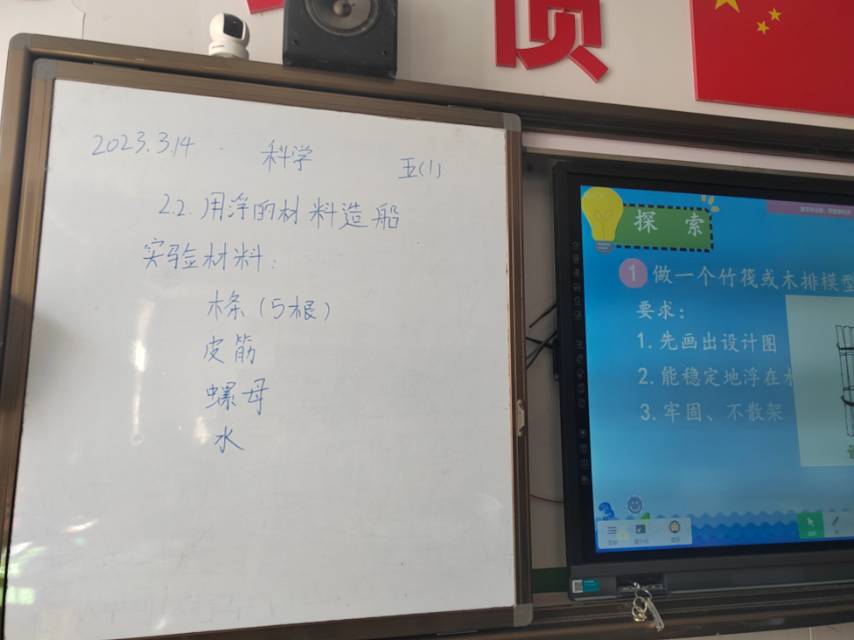 2023.3.14 科学 五(1)
2.2.用浮的材料造船
实验材料:
木条(5根)
皮筋
螺母
水
探 索
1 做一个竹筏或木排模型
要求:
1.先画出设计图
2.能稳定地浮在水
3.牢固、不散架